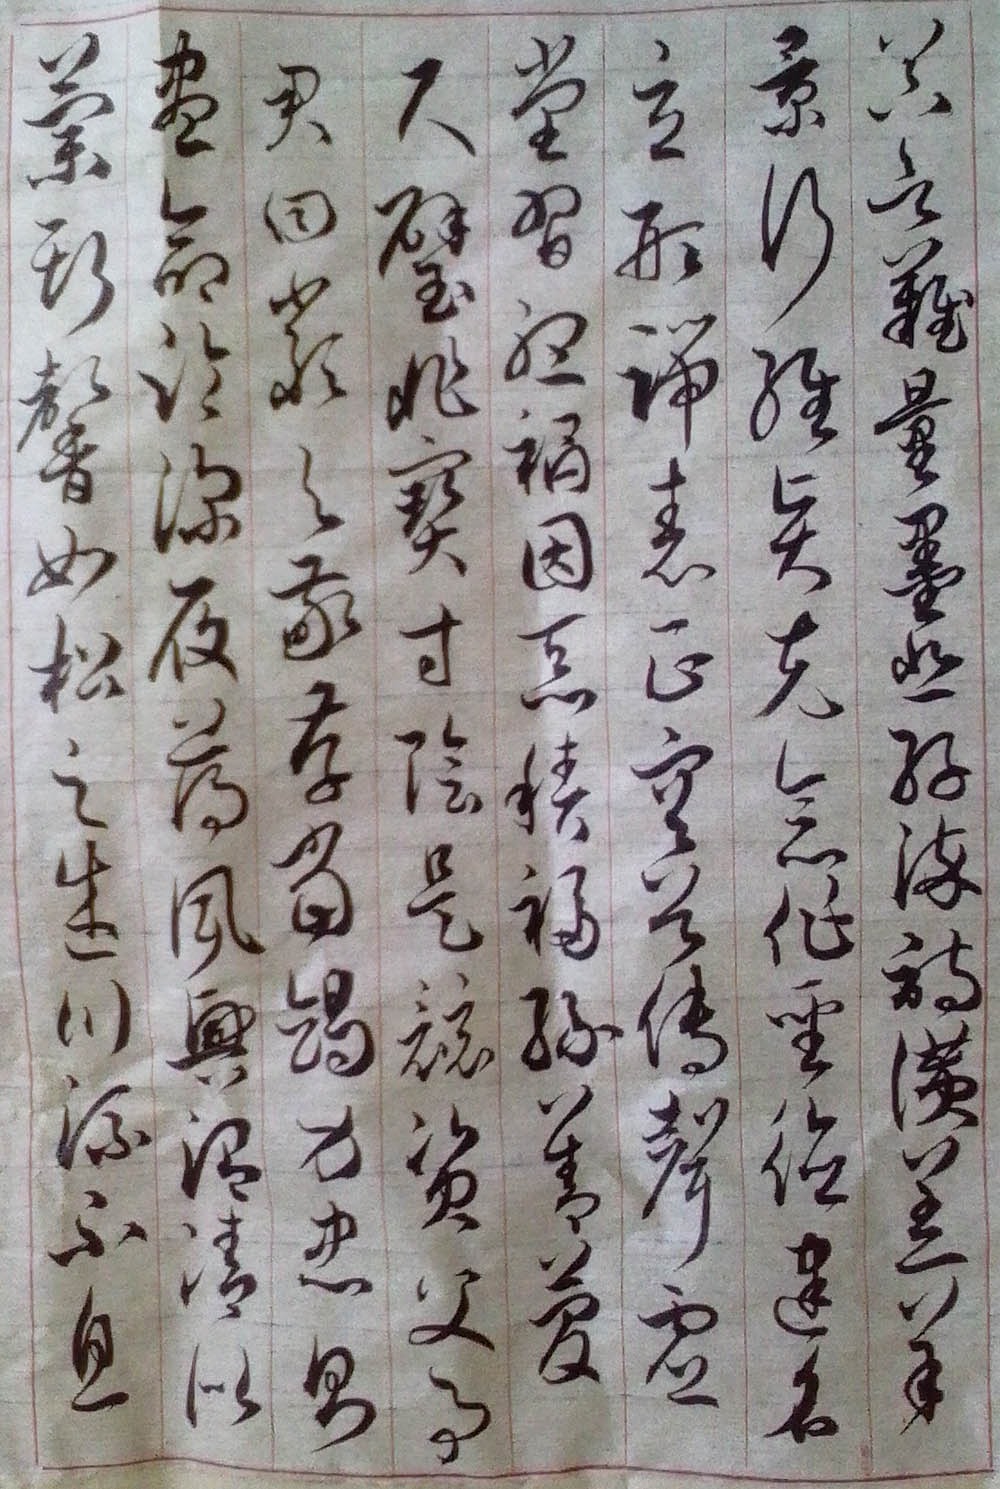 器欲難量墨悲絲染詩讚羔羊
景行維賢克念作聖德建名
立形端表正空谷傳聲虛
堂習聽禍因惡積福緣善慶
尺璧非寶寸陰是競資父事
君曰嚴與敬孝當竭力忠則
盡命臨深履薄夙興溫凊似
蘭斯馨如松之盛川流不息